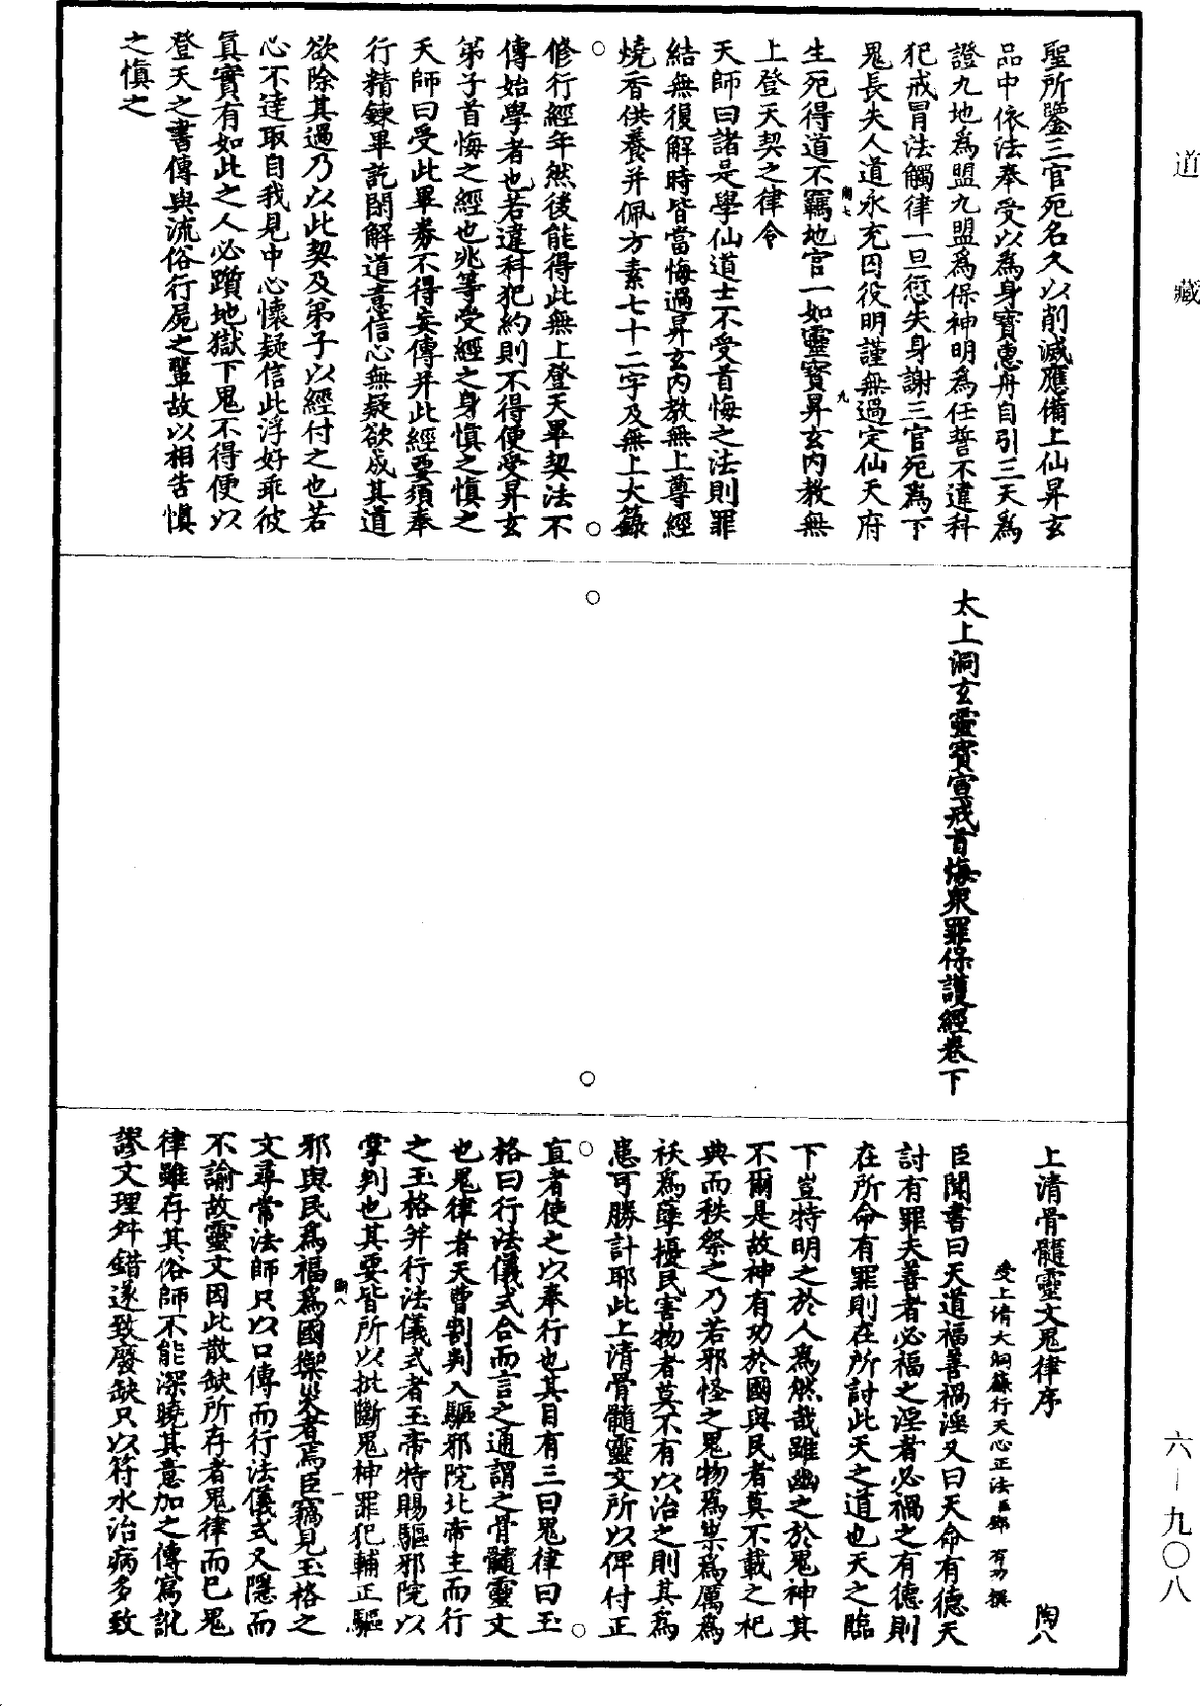 道藏
聖所鑒三官死名久以削滅應備上仙昇玄
品中依法奉受以為身寶惠舟自引三天為
證九地為盟九盟為保神明為任誓不違科
犯戒冒法觸律一旦愆失身謝三官死為下
鬼長夫人道永充囚役明謹無過定仙天府
陶七
九
生死得道不羈地官一如靈寶昇玄內教無
上登天契之律令
天師曰諸是學仙道士不受首悔之法則罪
結無復解時皆當悔過昇玄內教無上尊經
燒香供養并佩方素七十二字及無上大籙
修行經年然後能得此無上登天畢契法不
傳始學者也若違科犯約則不得便受昇玄
弟子首悔之經也兆等受經之身慎之慎之
天師曰受此畢券不得妄傳并此經要須奉
行精鍊畢訖閉解道意信心無疑欲成其道
欲除其過乃以此契及弟子以經付之也若
心不達取自我見中心懷疑信此浮好乖彼
真實有如此之人必躓地獄下鬼不得便以
登天之書傳與流俗行屍之輩故以相告慎
之慎之
太上洞玄靈寶宣戒首悔眾罪保護經卷下
上清骨髓靈文鬼律序 陶八
受上清大洞籙行天心正法臣鄧有功撰
臣聞書曰天道福善禍淫又曰天命有德天
討有罪夫善者必福之淫者必禍之有德則
在所命有罪則在所討此天之道也天之臨
下豈特明之於人為然哉雖幽之於鬼神其
不爾是故神有功於國與民者莫不載之祀
典而秩祭之乃若邪怪之鬼物為祟為厲為
祅為孽擾民害物者莫不有以治之則其為
患可勝計耶此上清骨髓靈文所以俾付正
直者使之以奉行也其目有三曰鬼律曰玉
格曰行法儀式合而言之通謂之骨髓靈文
也鬼律者天曹割判入驅邪院北帝主而行
之玉格并行法儀式者玉帝特賜驅邪院以
掌判也其要皆所以批斷鬼神罪犯輔正驅
陶八
一
邪與民為福為國禦災者焉臣竊見玉格之
文尋常法師只以口傳而行法儀式又隱而
不諭故靈文因此散缺所存者鬼律而已鬼
律雖存其俗師不能深曉其意加之傳寫訛
謬文理舛錯遂致廢缺只以符水治病多致
六－九〇八